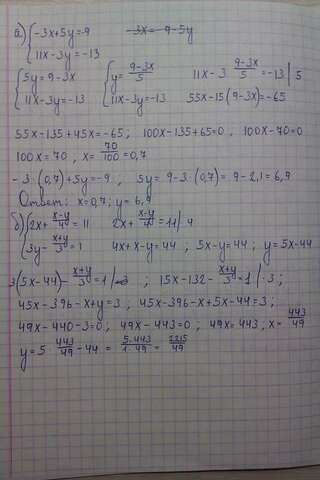 а) { -3x+5y=-9
11x-3y=-13
{ 5y=9-3x { y=9-3x/5 11x-3 9-3x/5=-13 | 5
11x-3y=-13 11x-3y=-13 55x-15(9-3x)=-65
55x-135+45x=-65; 100x-135+65=0; 100x-70=0
100x=70, x=70/100=0,7
-3·(0,7)+5y=-9, 5y=9-3·(0,7)=9-2,1=6,9
Ответ: x=0,7; y=6,9
б) { 2x+x-y/4=11 2x+x-y/4=11 | 4
3y-x+y/3=1 4x+x-y=44; 5x-y=44; y=5x-44
3(5x-44)-x+y/3=1 ; 15x-132-x+y/3=1 /·3;
45x-396-x+y=3; 45x-396-x+5x-44=3;
49x-440-3=0; 49x-443=0; 49x=443, x=443/49
y=5·443/49-44=5·443/1·49=2215/49